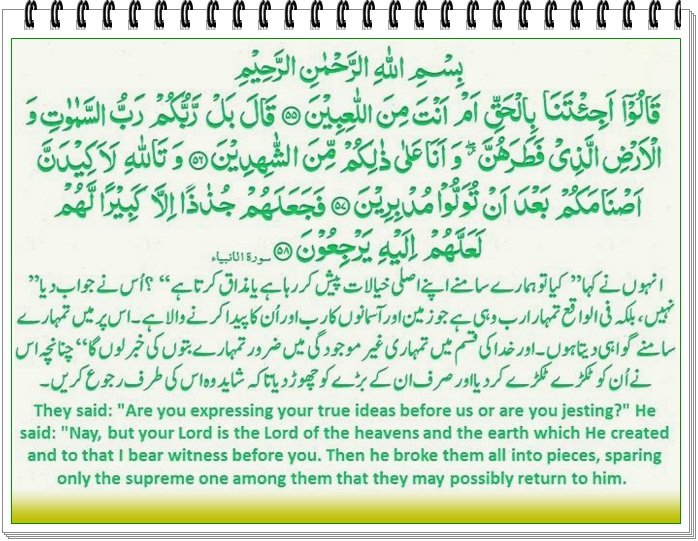 بِسْمِ اللهِ الرَّحْمٰنِ الرَّحِيْمِ
قَالُوْٓا اَجِئْتَنَا بِالْحَقِّ اَمْ اَنْتَ مِنَ اللّٰعِبِيْنَ ۝۵۵ قَالَ بَلْ رَّبُّكُمْ رَبُّ السَّمٰوٰتِ وَ
الْاَرْضِ الَّذِيْ فَطَرَهُنَّ ۖ وَ اَنَا عَلٰى ذٰلِكُمْ مِّنَ الشّٰهِدِيْنَ ۝۵۶ وَ تَاللهِ لَاَكِيْدَنَّ
اَصْنَامَكُمْ بَعْدَ اَنْ تُوَلُّوْا مُدْبِرِيْنَ ۝۵۷ فَجَعَلَهُمْ جُذٰذًا اِلَّا كَبِيْرًا لَّهُمْ
لَعَلَّهُمْ اِلَيْهِ يَرْجِعُوْنَ ۝۵۸ سورة الانبیاء
انہوں نے کہا ”کیا تو ہمارے سامنے اپنے اصلی خیالات پیش کر رہا ہے یا مذاق کرتا ہے“؟ اُس نے جواب دیا ”
نہیں، بلکہ فی الواقع تمہارا رب وہی ہے جو زمین اور آسمانوں کا رب اور اُن کا پیدا کرنے والا ہے۔ اس پر میں تمہارے
سامنے گواہی دیتا ہوں۔ اور خدا کی قسم میں تمہاری غیر موجودگی میں ضرور تمہارے بتوں کی خبر لوں گا“ چنانچہ اس
نے اُن کو ٹکڑے ٹکڑے کر دیا اور صرف ان کے بڑے کو چھوڑ دیا تاکہ شاید وہ اس کی طرف رجوع کریں۔
They said: "Are you expressing your true ideas before us or are you jesting?" He
said: "Nay, but your Lord is the Lord of the heavens and the earth which He created
and to that I bear witness before you. Then he broke them all into pieces, sparing
only the supreme one among them that they may possibly return to him.